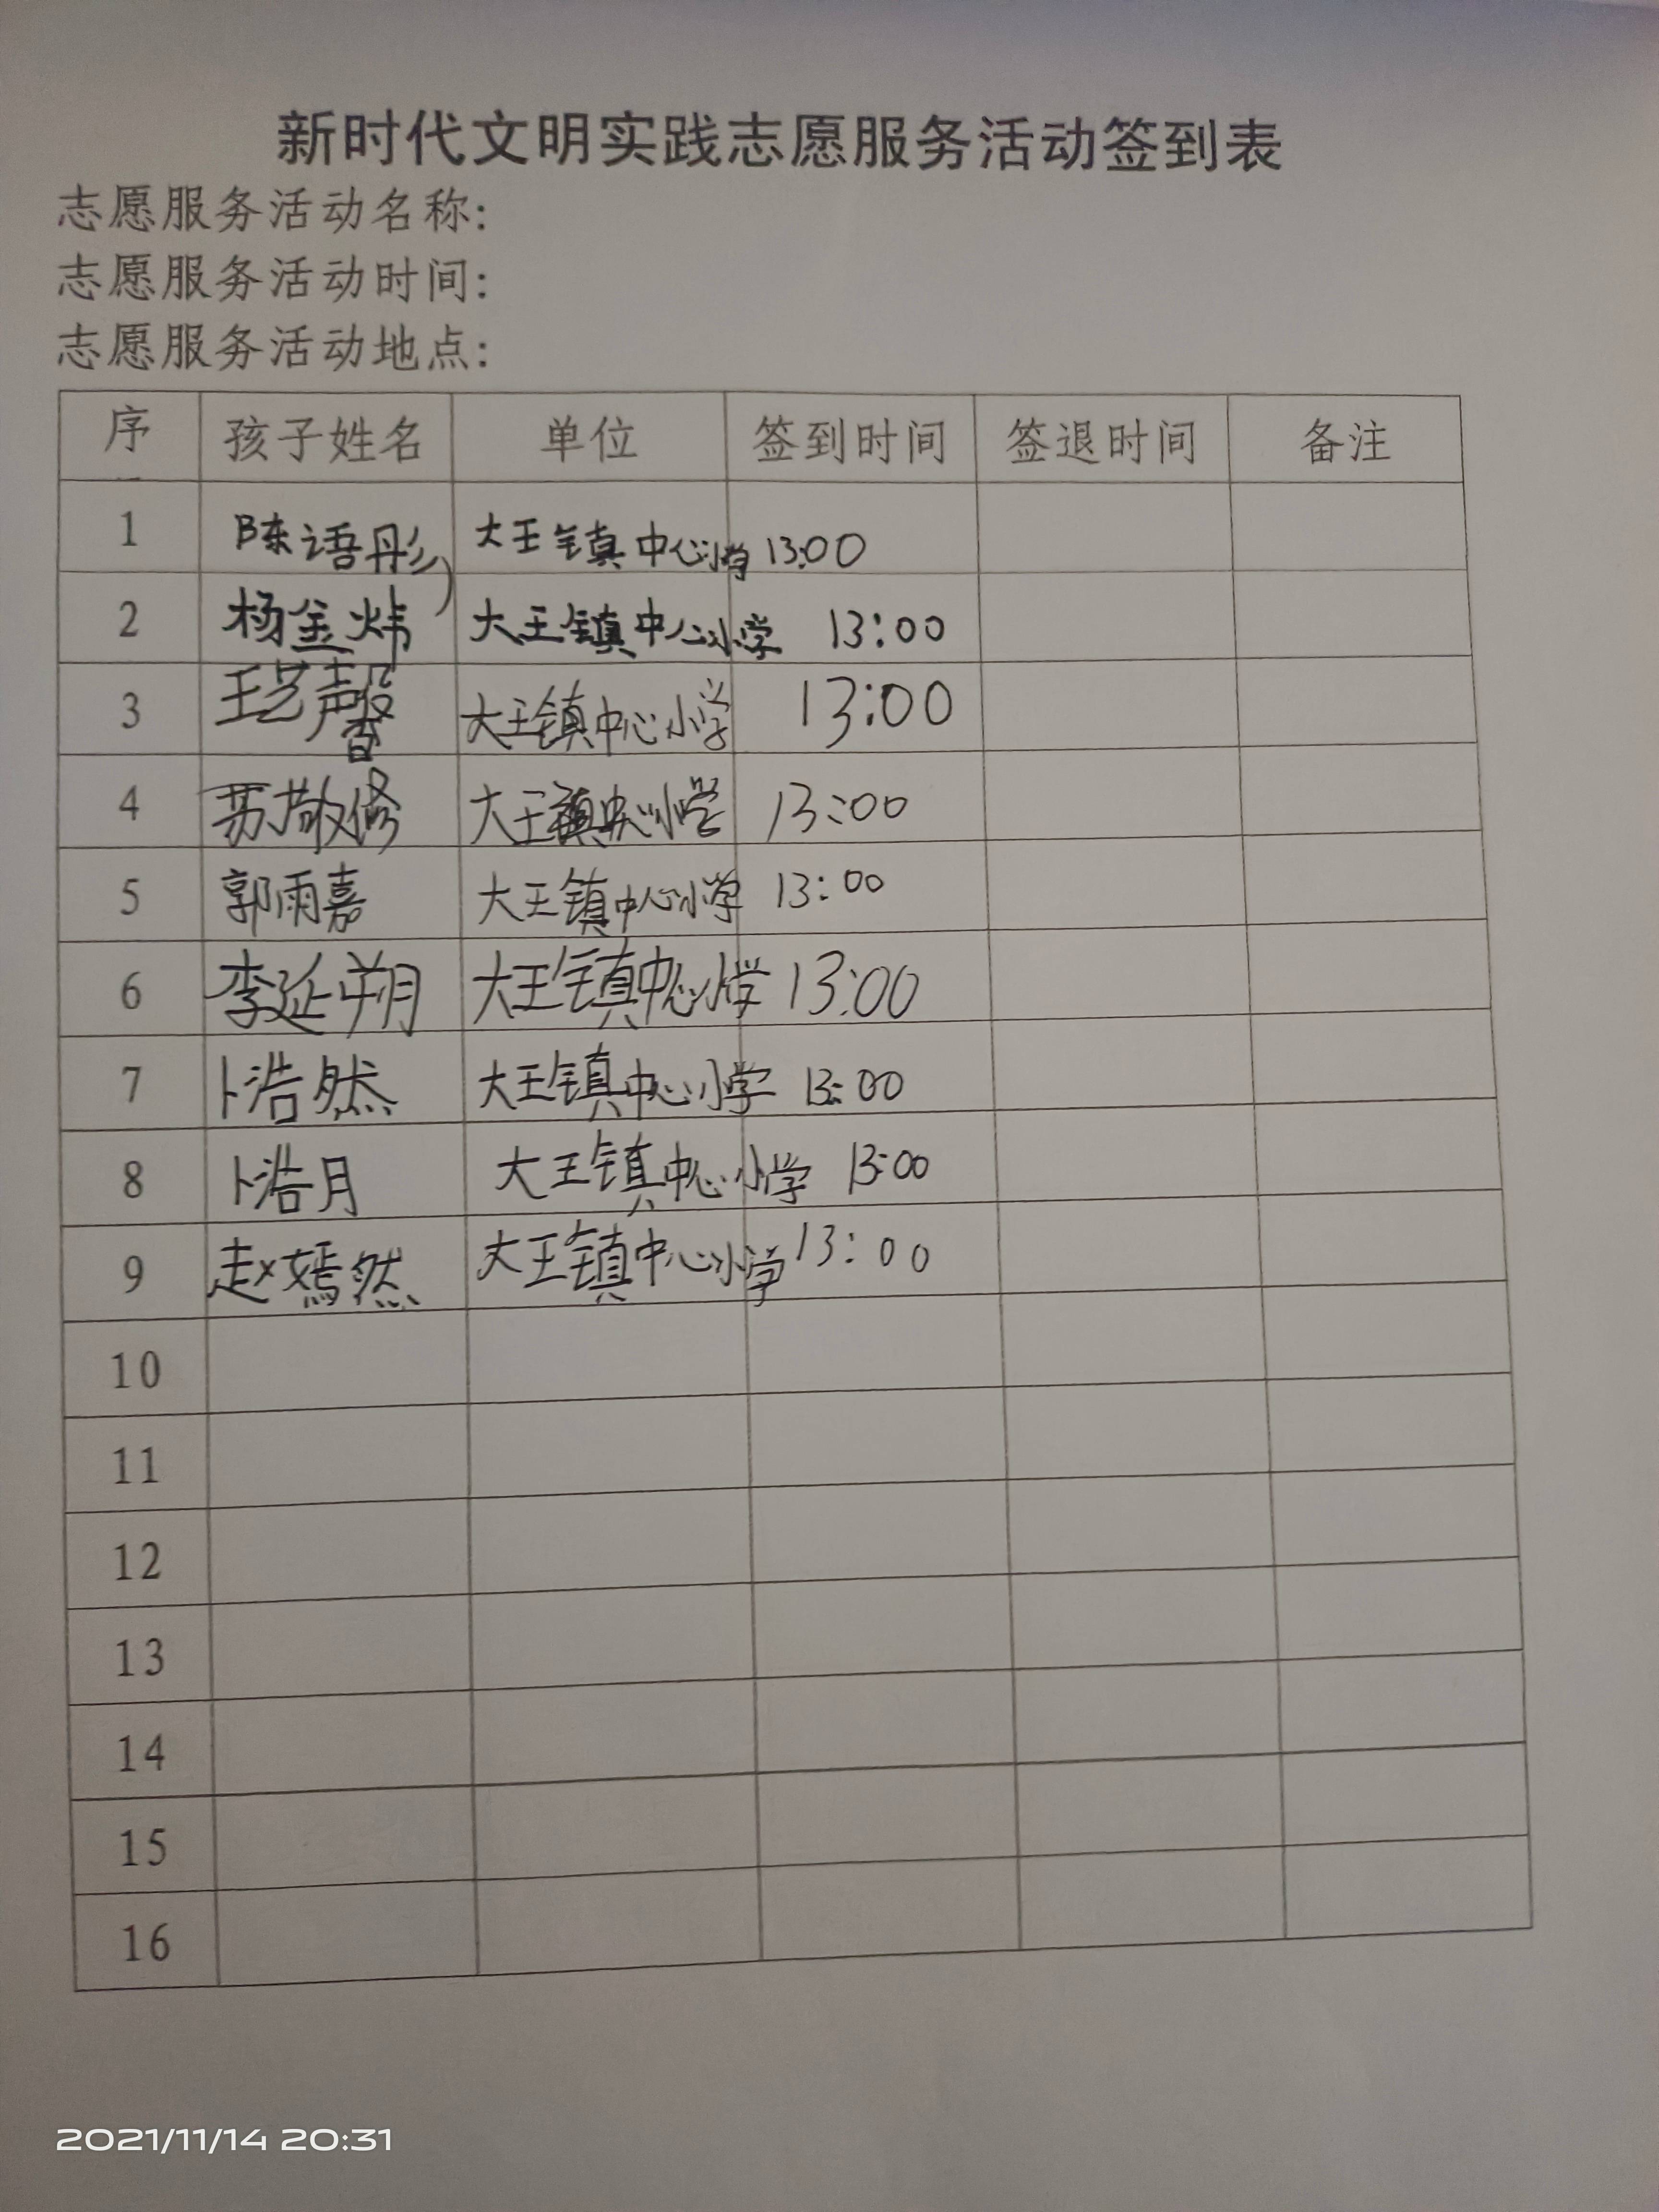 新时代文明实践志愿服务活动签到表
志愿服务活动名称:
志愿服务活动时间:
志愿服务活动地点:
序 孩子姓名 单位 签到时间 签退时间 备注
1 陈语彤 大王镇中心小学 13:00
2 杨金炜 大王镇中心小学 13:00
3 王艺馨 大王镇中心小学 13:00
4 苏敬修 大王镇中心小学 13:00
5 郭雨嘉 大王镇中心小学 13:00
6 李延朔 大王镇中心小学 13:00
7 卜浩然 大王镇中心小学 13:00
8 卜浩月 大王镇中心小学 13:00
9 赵嫣然 大王镇中心小学 13:00
10
11
12
13
14
15
16
2021/11/14 20:31